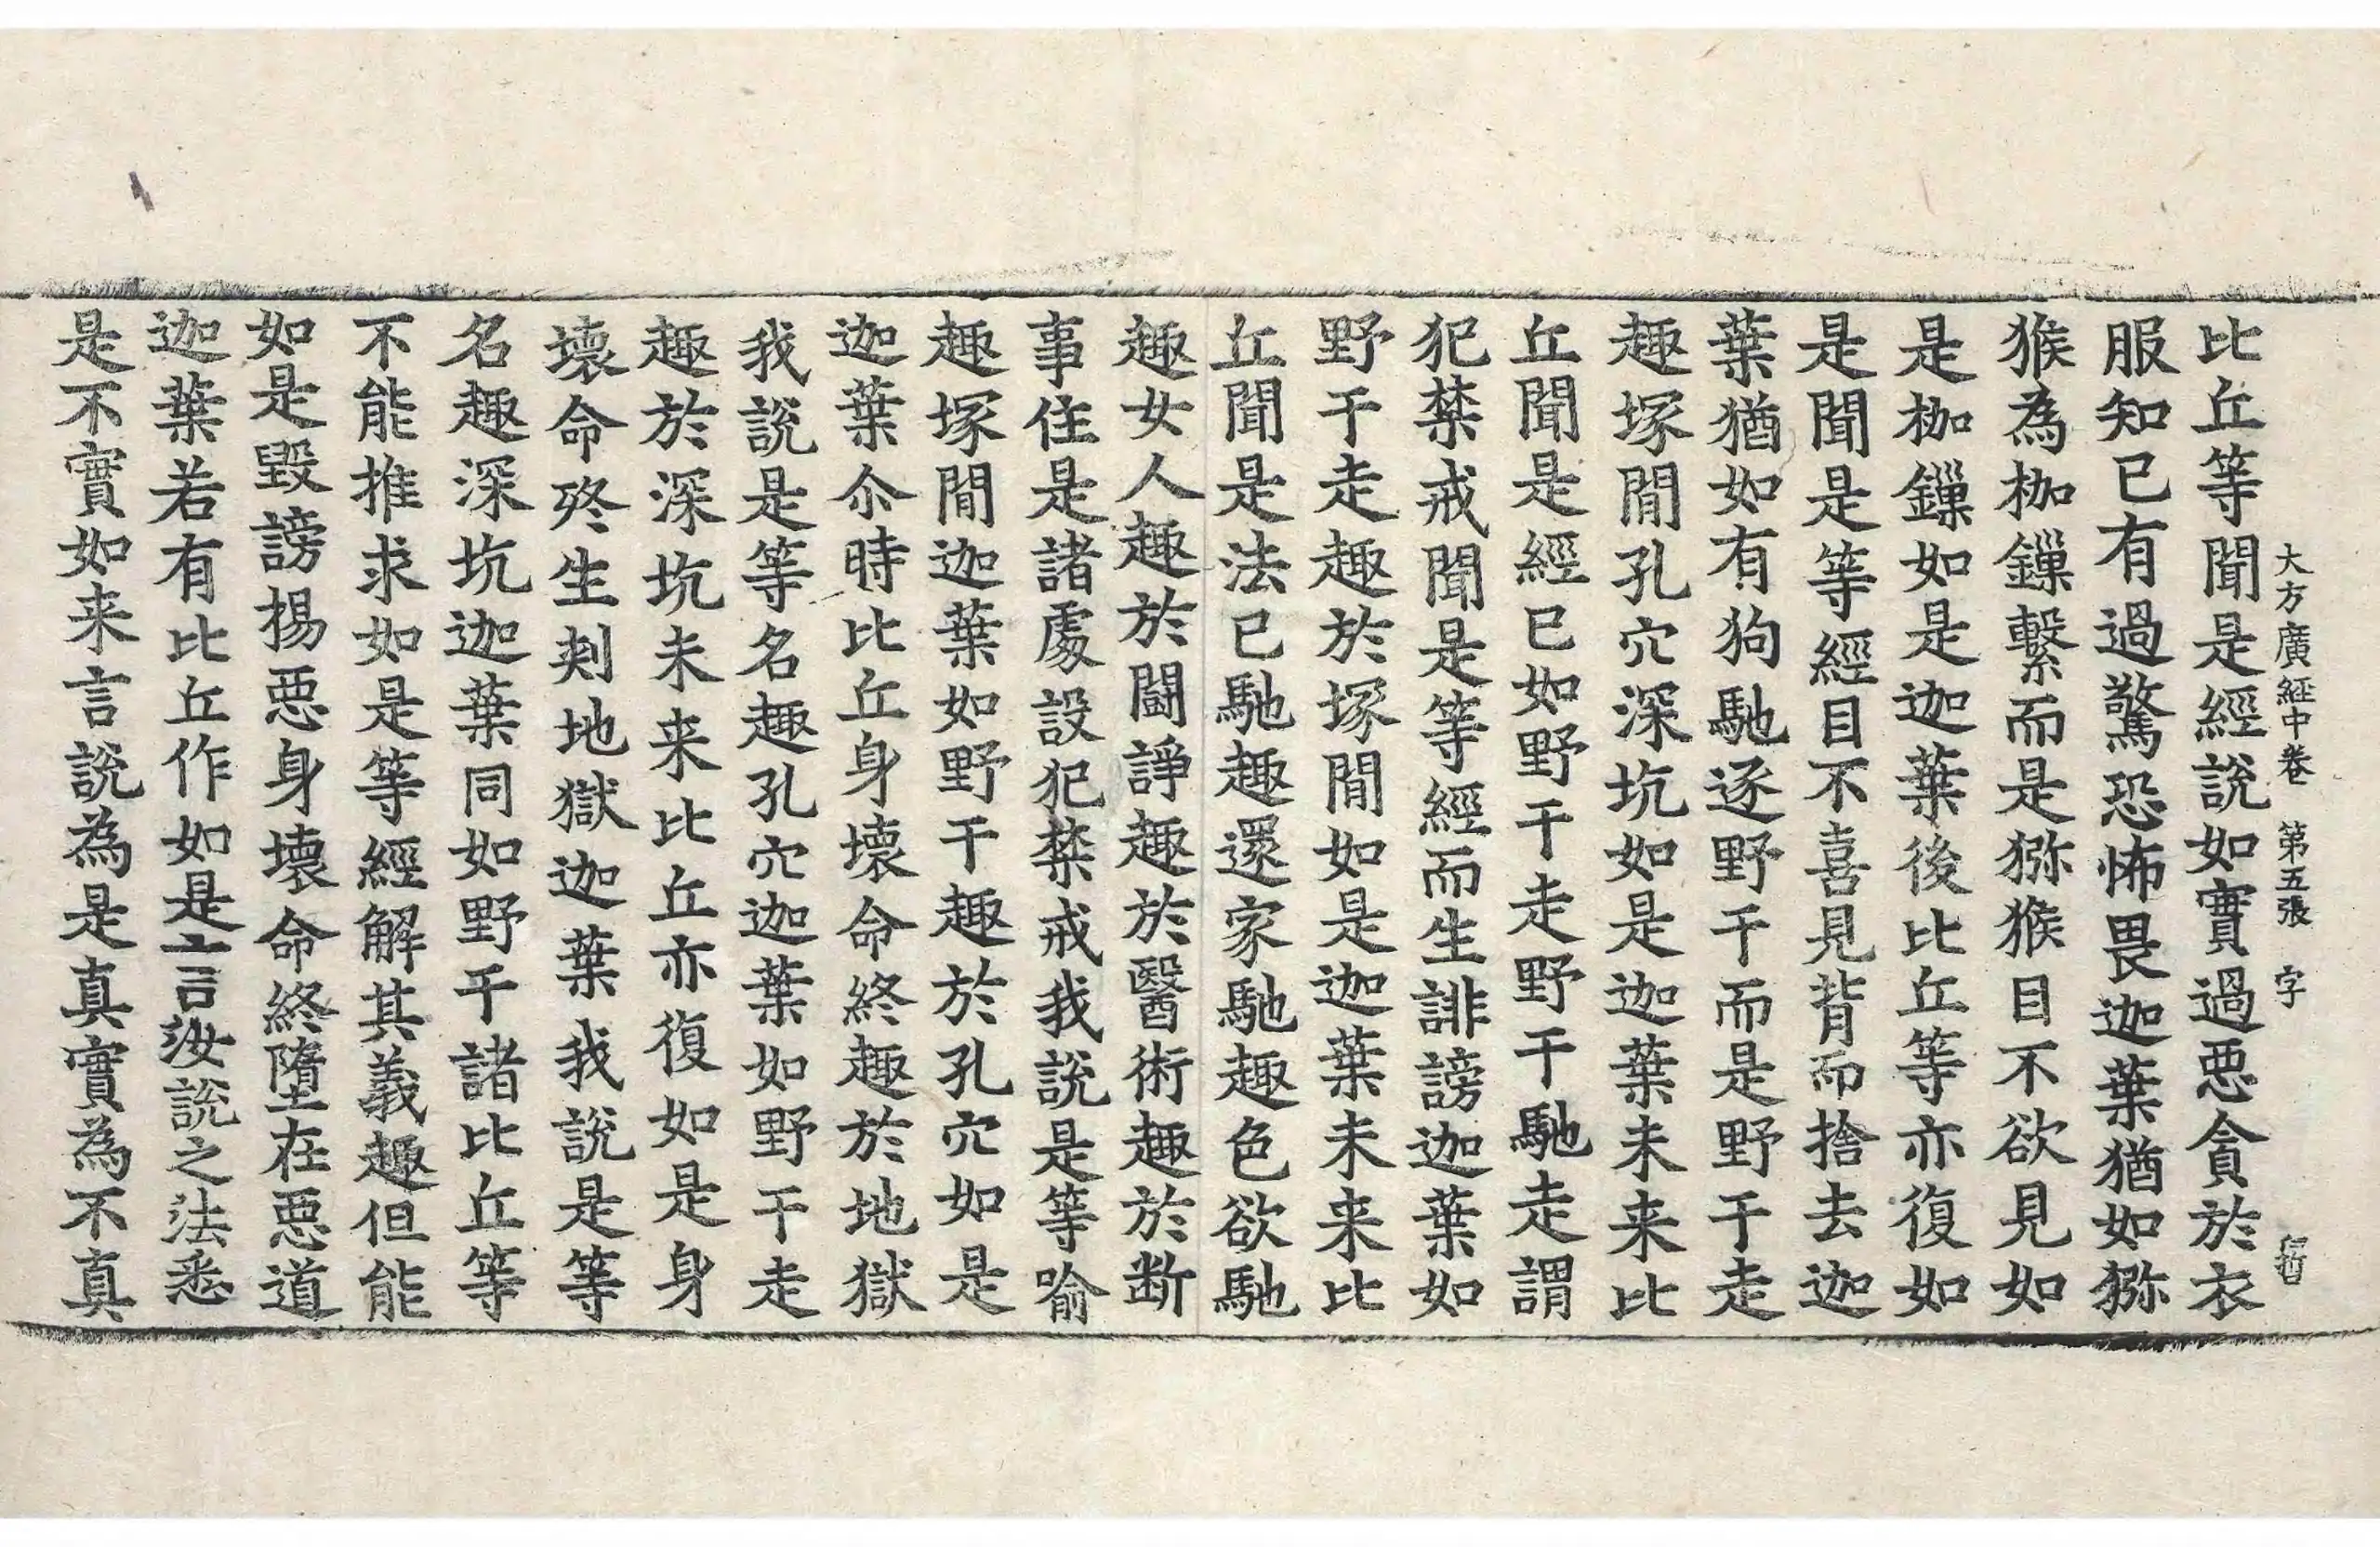 大方廣経中卷 第五張 字
比丘等聞是經說如實過惡貪於衣
服知已有過驚恐怖畏迦葉猶如猕
猴為枷鏁繫而是猕猴目不欲見如
是枷鏁如是迦葉後比丘等亦復如
是聞是等經目不喜見背而捨去迦
葉猶如有狗馳逐野干而是野干走
趣塚間孔穴深坑如是迦葉未来比
丘聞是經已如野干走野干馳走謂
犯禁戒聞是等經而生誹謗迦葉如
野干走趣於塚間如是迦葉未来比
丘聞是法已馳趣還家馳趣色欲馳
趣女人趣於鬪諍趣於醫術趣於断
事住是諸處設犯禁戒我說是等喻
趣塚間迦葉如野干趣於孔穴如是
迦葉尒時比丘身壞命終趣於地獄
我說是等名趣孔穴迦葉如野干走
趣於深坑未来比丘亦復如是身
壞命終生剌地獄迦葉我說是等
名趣深坑迦葉同如野干諸比丘等
不能推求如是等經解其義趣但能
如是毀謗揚惡身壞命終墮在惡道
迦葉若有比丘作如是言汝說之法悉
是不實如来言說為是真實為不真